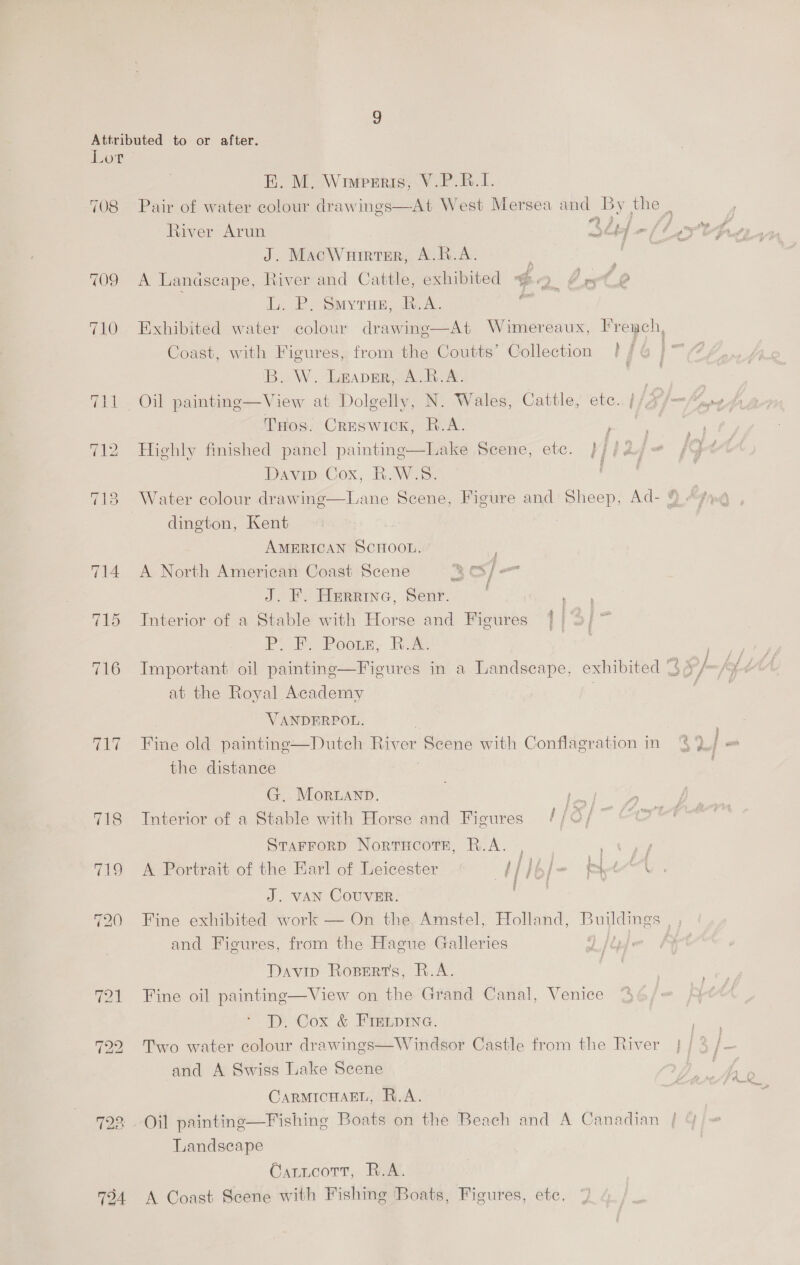 9
Attributed to or after.
Lot
E. M. Wimperis, V.P.R.I.
708 Pair of water colour drawings—At West Mersea and By the
River Arun
J. MacWhirter, A.R.A.
709 A Landscape, River and Cattle, exhibited
L. P. Smythe, R.A.
710 Exhibited water colour drawing—At Wimereaux, French
Coast, with Figures, from the Coutts' Collection 1/6
B. W. Leader, A.R.A.
711 Oil painting—View at Dolgelly, N. Wales, Cattle, etc.
Thos. Creswick, R.A.
712 Highly finished panel painting—Lake Scene, etc.
David Cox, R.W.S.
713 Water colour drawing—Lane Scene, Figure and Sheep, Ad-
dington, Kent
American School.
714 A North American Coast Scene
J. F. Herring, Senr.
715 Interior of a Stable with Horse and Figures
P. F. Poole, R.A.
716 Important oil painting—Figures in a Landscape, exhibited
at the Royal Academy
Vanderpol.
717 Fine old painting—Dutch River Scene with Conflagration in
the distance
G. Morland.
718 Interior of a Stable with Horse and Figures
Stafford Northcote, R.A.
719 A Portrait of the Earl of Leicester
J. van Couver.
720 Fine exhibited work — On the Amstel, Holland, Buildings
and Figures, from the Hague Galleries
David Roberts, R.A.
721 Fine oil painting—View on the Grand Canal, Venice
D. Cox & Fielding.
722 Two water colour drawings—Windsor Castle from the River
and A Swiss Lake Scene
Carmichael, R.A.
723 Oil painting—Fishing Boats on the Beach and A Canadian
Landscape
Callcott, R.A.
724 A Coast Scene with Fishing Boats, Figures, etc.